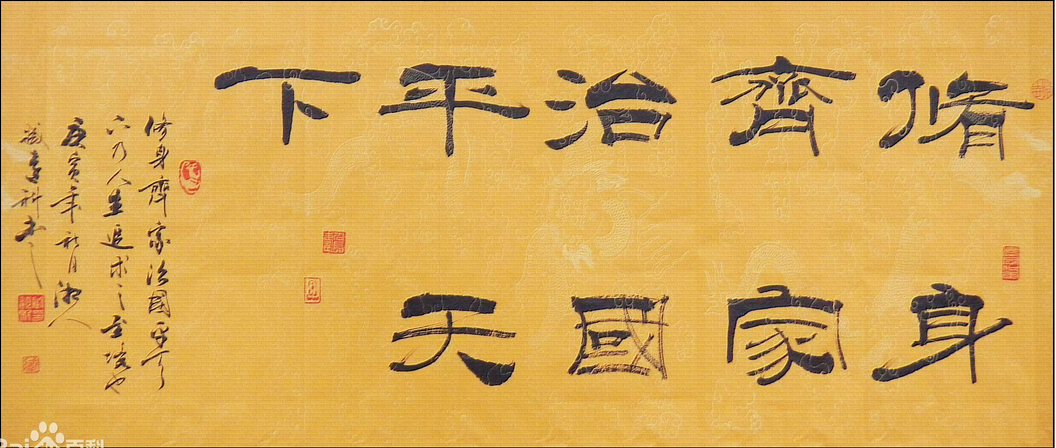 脩身
齊家
治國
平天
下
修身齊家治國平天
下乃人生追求之至境也
庚寅年秋月湘人
百科